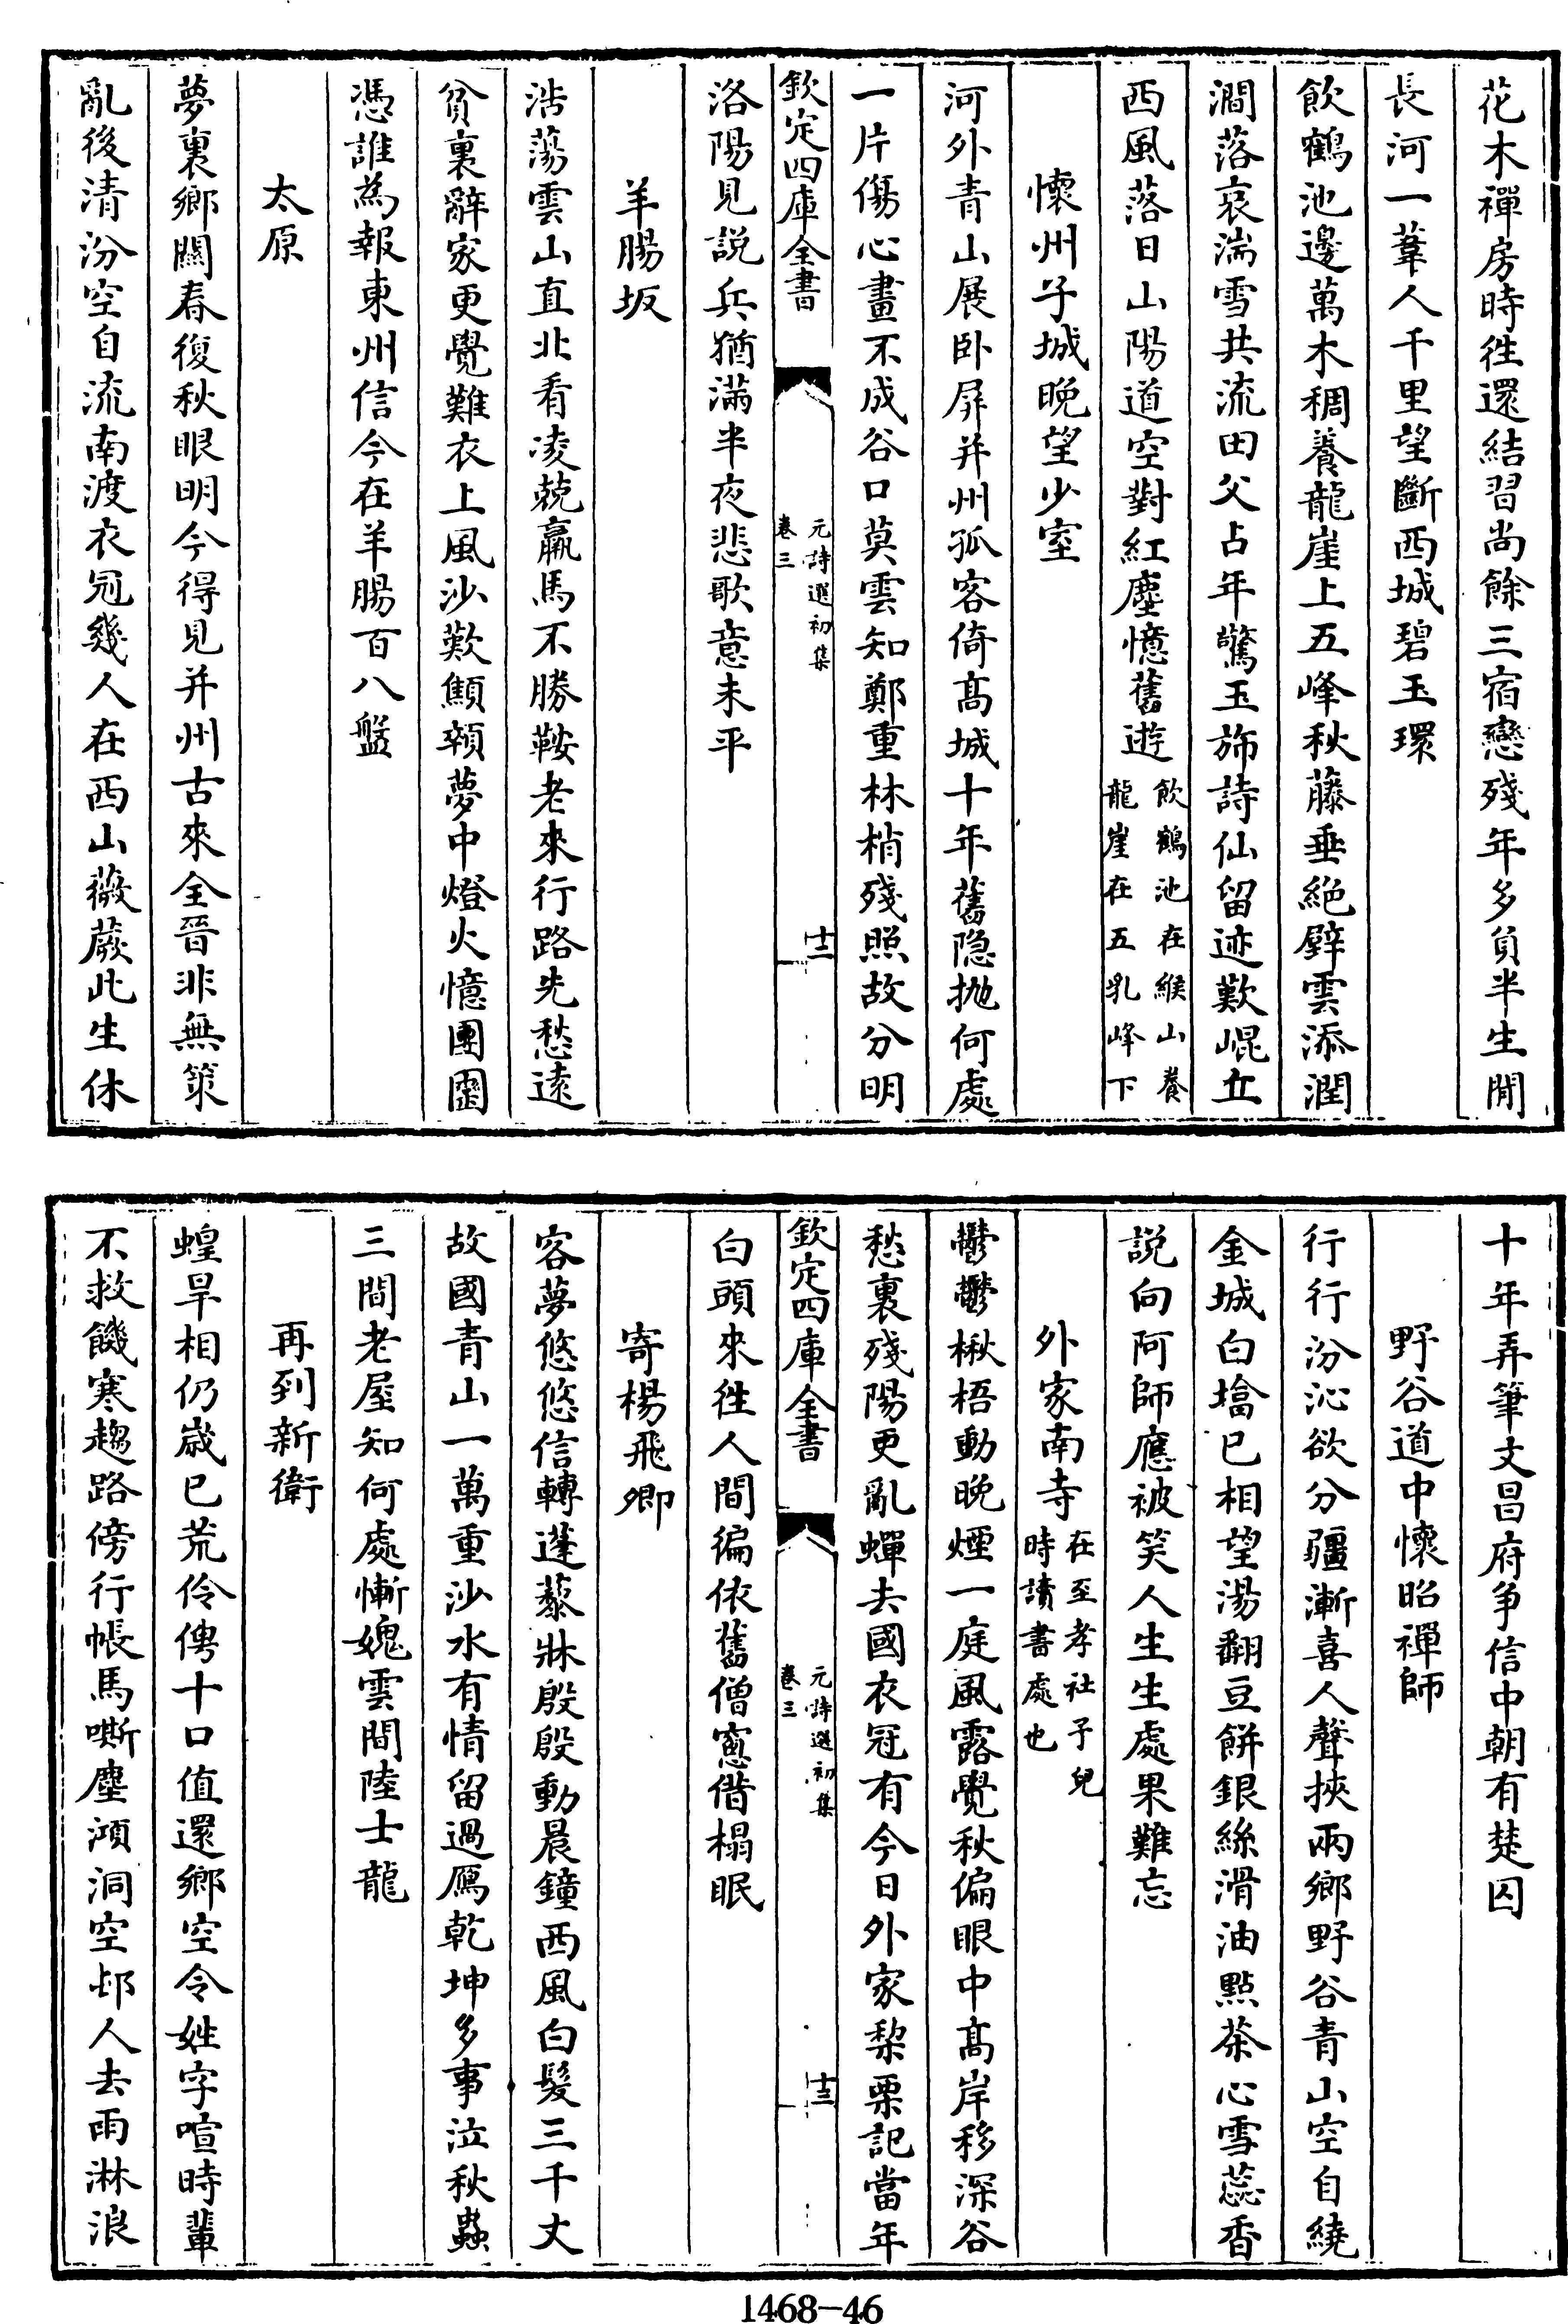 花木禪房時徃還結習尚餘三宿戀殘年多負半生閒
長河一葦人千里望斷西城碧玉環
飲鶴池邊萬木稠養龍崖上五峰秋藤垂絶壁雲添潤
澗落哀湍雪共流田父占年驚玉斾詩仙留迹歎崐丘
西風落日山陽道空對紅塵憶舊遊飲鶴池在緱山養
龍崖在五乳峰下
懷州子城晚望少室
河外青山展卧屏并州孤客倚髙城十年舊隠抛何處
一片傷心畫不成谷口莫雲知鄭重林梢殘照故分明
欽定四庫全書
元詩選初集
卷三
十二
洛陽見説兵猶滿半夜悲歌意未平
羊腸坂
浩蕩雲山直北看凌兢羸馬不勝鞍老來行路先愁逺
貧裏辭家更覺難衣上風沙歎顦顇夢中燈火憶團圞
憑誰為報東州信今在羊腸百八盤
太原
夢裏鄉關春復秋眼明今得見并州古來全晉非無策
亂後清汾空自流南渡衣冠幾人在西山薇蕨此生休
十年弄筆文昌府争信中朝有楚囚
野谷道中懷昭禪師
行行汾沁欲分疆漸喜人聲挾兩鄉野谷青山空自繞
金城白塔已相望湯翻豆餅銀絲滑油㸃茶心雪蕊香
説向阿師應被笑人生生處果難忘
外家南寺在至孝社予兒
時讀書處也
鬱鬱楸梧動晚煙一庭風露覺秋偏眼中髙岸移深谷
愁裏殘陽更亂蟬去國衣冠有今日外家梨栗記當年
欽定四庫全書
元詩選初集
卷三
十三
白頭來徃人間徧依舊僧窓借榻眠
寄楊飛卿
客夢悠悠信轉蓬藜牀殷殷動晨鐘西風白髮三千丈
故國青山一萬重沙水有情留過鴈乾坤多事泣秋蟲
三間老屋知何處慚媿雲間陸士龍
再到新衛
蝗旱相仍嵗已荒伶俜十口值還鄉空令姓字喧時輩
不救饑寒趨路傍行帳馬嘶塵澒洞空邨人去雨淋浪
1468-46